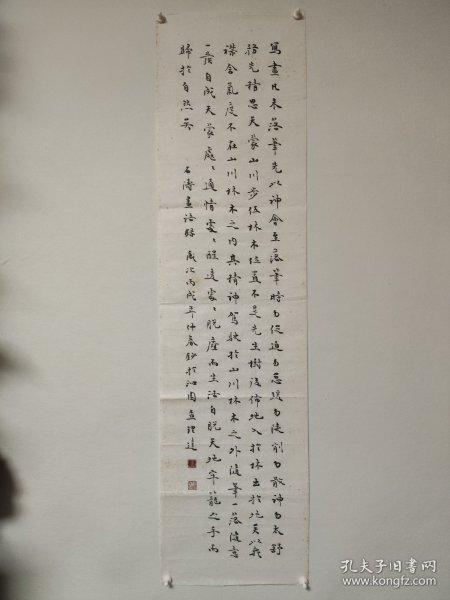 寫畫凡未落筆先以神會至落筆時勿促迫勿怠緩勿陡削勿散神勿太舒
務先精思天蒙山川步伍林木位置不是先生樹後佈地入於林出於地矣以我
襟含氣度不在山川林木之內其精神駕馭於山川林木之外隨筆一落隨意
一發自成天蒙處處通情處處醒透處處脫塵而生活自脫天地牢籠之手而
歸於自然矣
石濤畫語錄 歲次丙戌年仲春鈔於沁園
孔夫子旧书网
www.kongfz.com